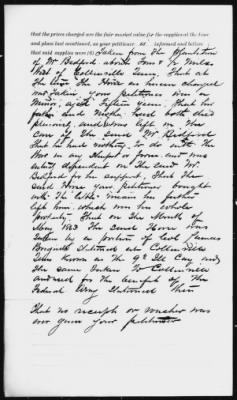 that the prices charged are the fair market value for the supplies at the time
and place last mentioned, as your petitioner is informed and believes
that said supplies were (6) Taken from the Plantation
of Mr Bedford about Four & ½ miles
West of Collierville Tenn. That at
the time the Horse as herein charged
was taken, your petitioner was a
Minor, aged Fifteen years. That his
father and mother, had both died
previous, and was left in the
care of the said Mr Bedford
That he had nothing to do with the
War in any shape or form and was
entirely dependent on the said Mr
Bedford for his support, That the
said Horse your petitioner bought
with the little means his father
left him, which was his whole
property. That on the Month of
May 1863 the said Horse was
taken by a portion of
Brigade Stationed at Collierville
Tenn known as the 9th Ill Cav. and
the same taken to Collierville
and used for the benefit of the
Federal Army Stationed there
That no receipt or voucher was
ever given your petitioner